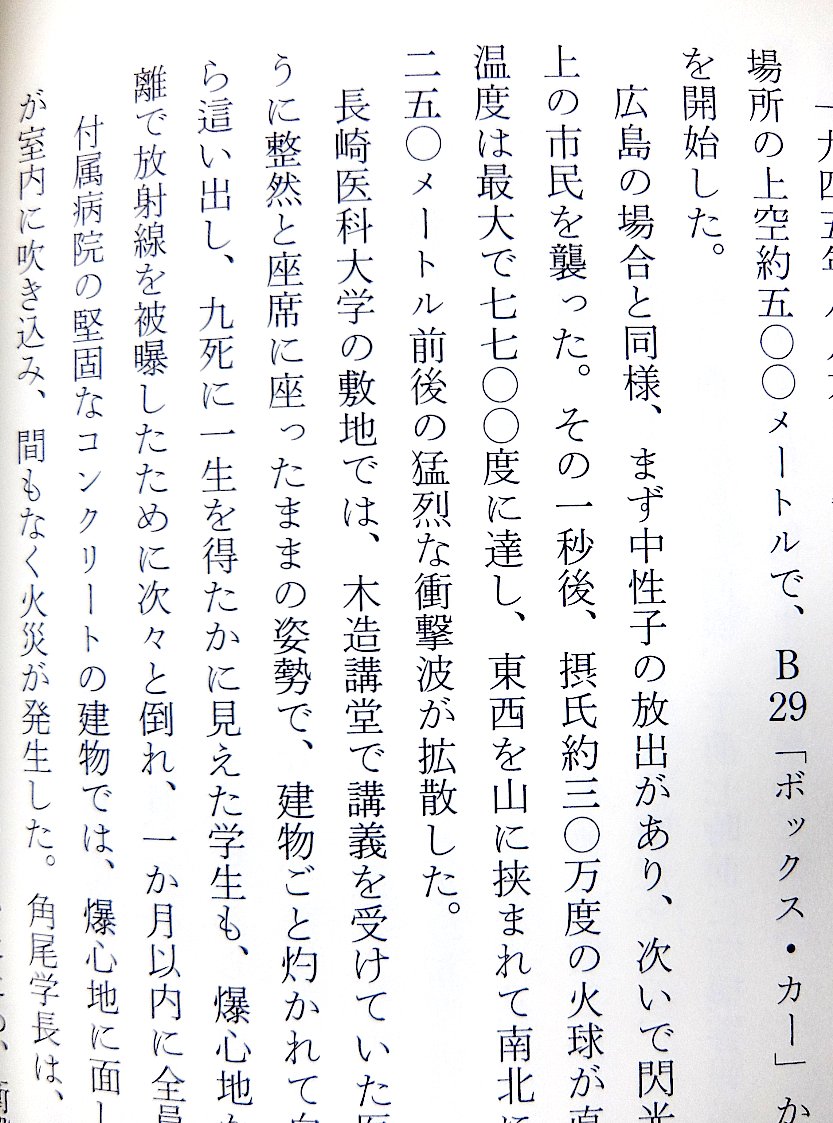 一九四五年八月九
場所の上空約五〇〇メートルで、B29「ボックス・カー」か
を開始した。
広島の場合と同様、まず中性子の放出があり、次いで閃光
上の市民を襲った。その一秒後、摂氏約三〇万度の火球が直
温度は最大で七七〇〇度に達し、東西を山に挟まれて南北に
二五〇メートル前後の猛烈な衝撃波が拡散した。
長崎医科大学の敷地では、木造講堂で講義を受けていた医
うに整然と座席に座ったままの姿勢で、建物ごと灼かれて白
ら這い出し、九死に一生を得たかに見えた学生も、爆心地か
離で放射線を被曝したために次々と倒れ、一か月以内に全員
付属病院の堅固なコンクリートの建物では、爆心地に面し
が室内に吹き込み、間もなく火災が発生した。角尾学長は、